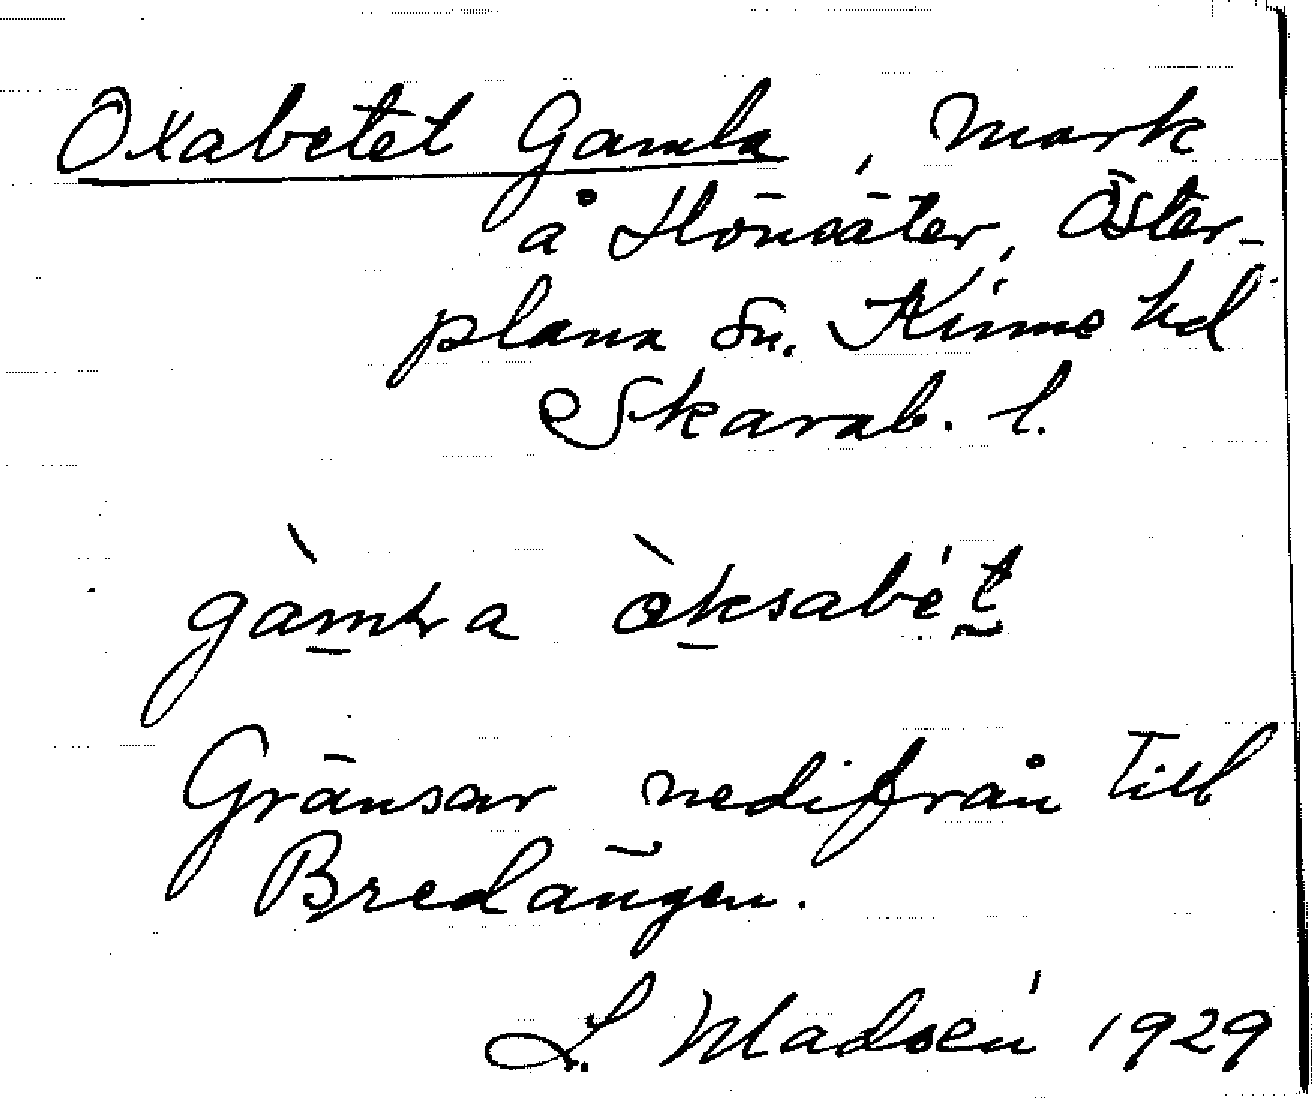 Oxabetet Gamla, Mark
å Hönsäter, Öster-
plana Sn. Kinne hd
Skarab. l.
gàmla òksabét
Gränsar nedifrån till
Bredängen.
L. Madsén 1929